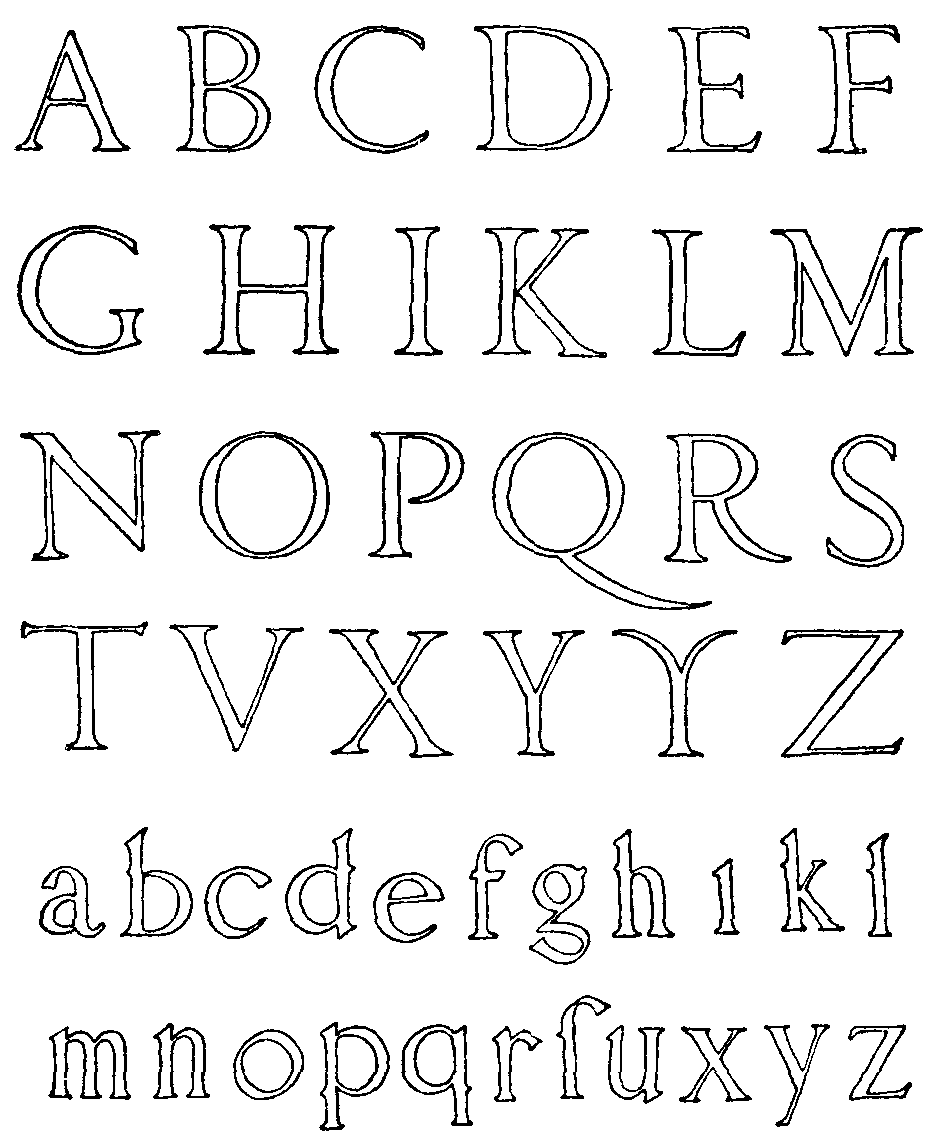 A B C D E F
G H I K L M
N O P Q R S
T V X Y Y Z
a b c d e f g h ı k l
m n o p q r ſ u x y z